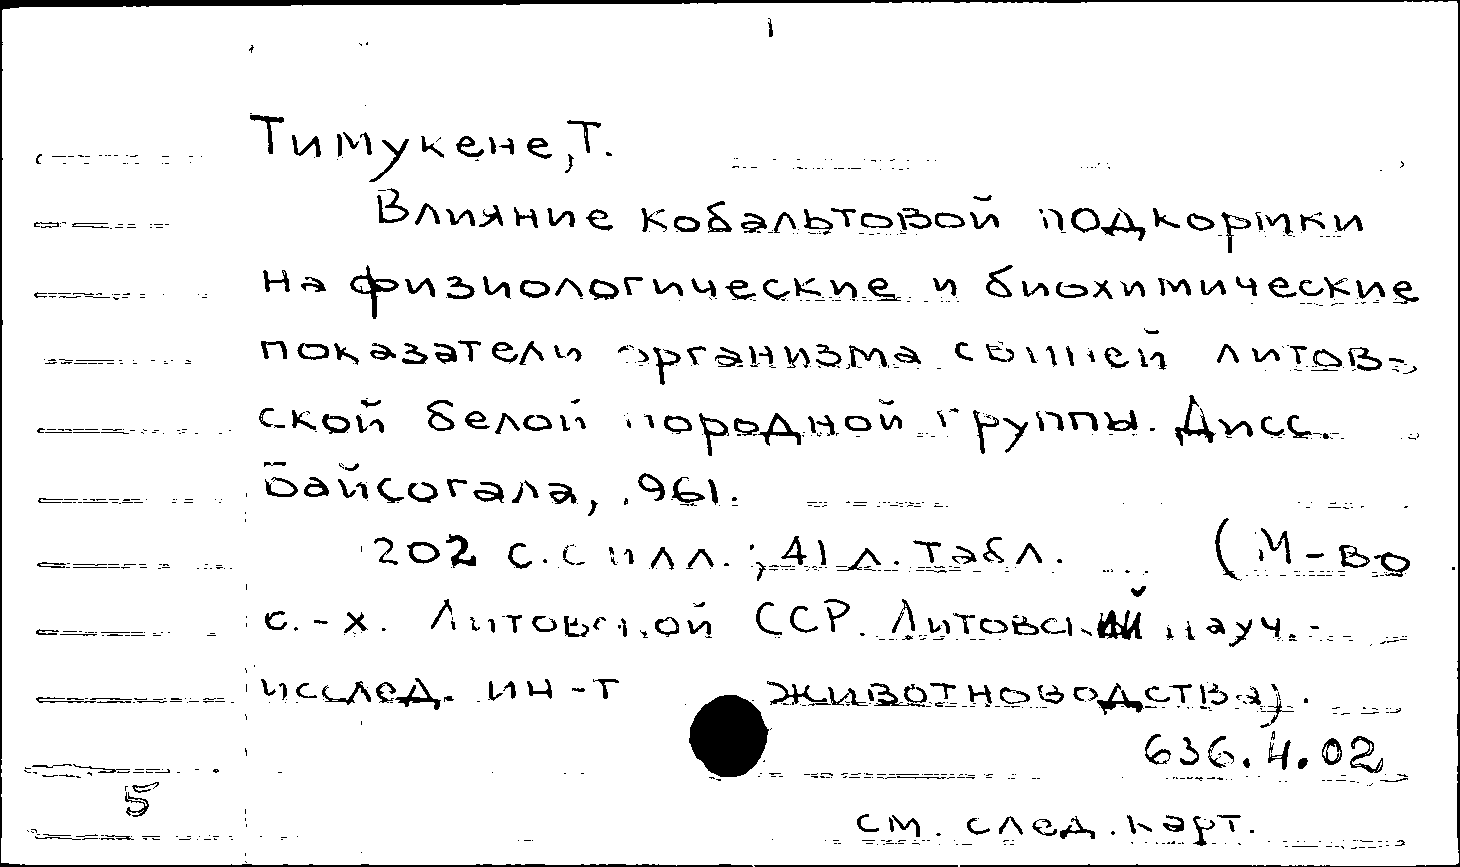 Тимукене, Т.
Влияние кобальтовой подкормки
на физиологические и биохимические
показатели организма свиней литов-
ской белой породной группы. Дисс.
Байсогала, 1961.
202 с. с илл.; 41 л. табл. (М-во
с.-х. Литовской ССР. Литовский науч.-
исслед. ин-т животноводства).
636.4.02
5
см. след. карт.